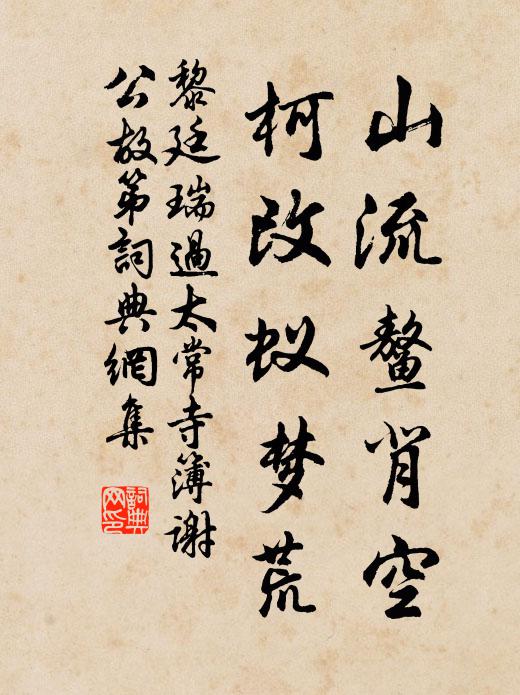 山流鳌背空
柯改蚁梦荒
黎廷瑞過太常寺簿谢
公故第詞典網集
詞典网印